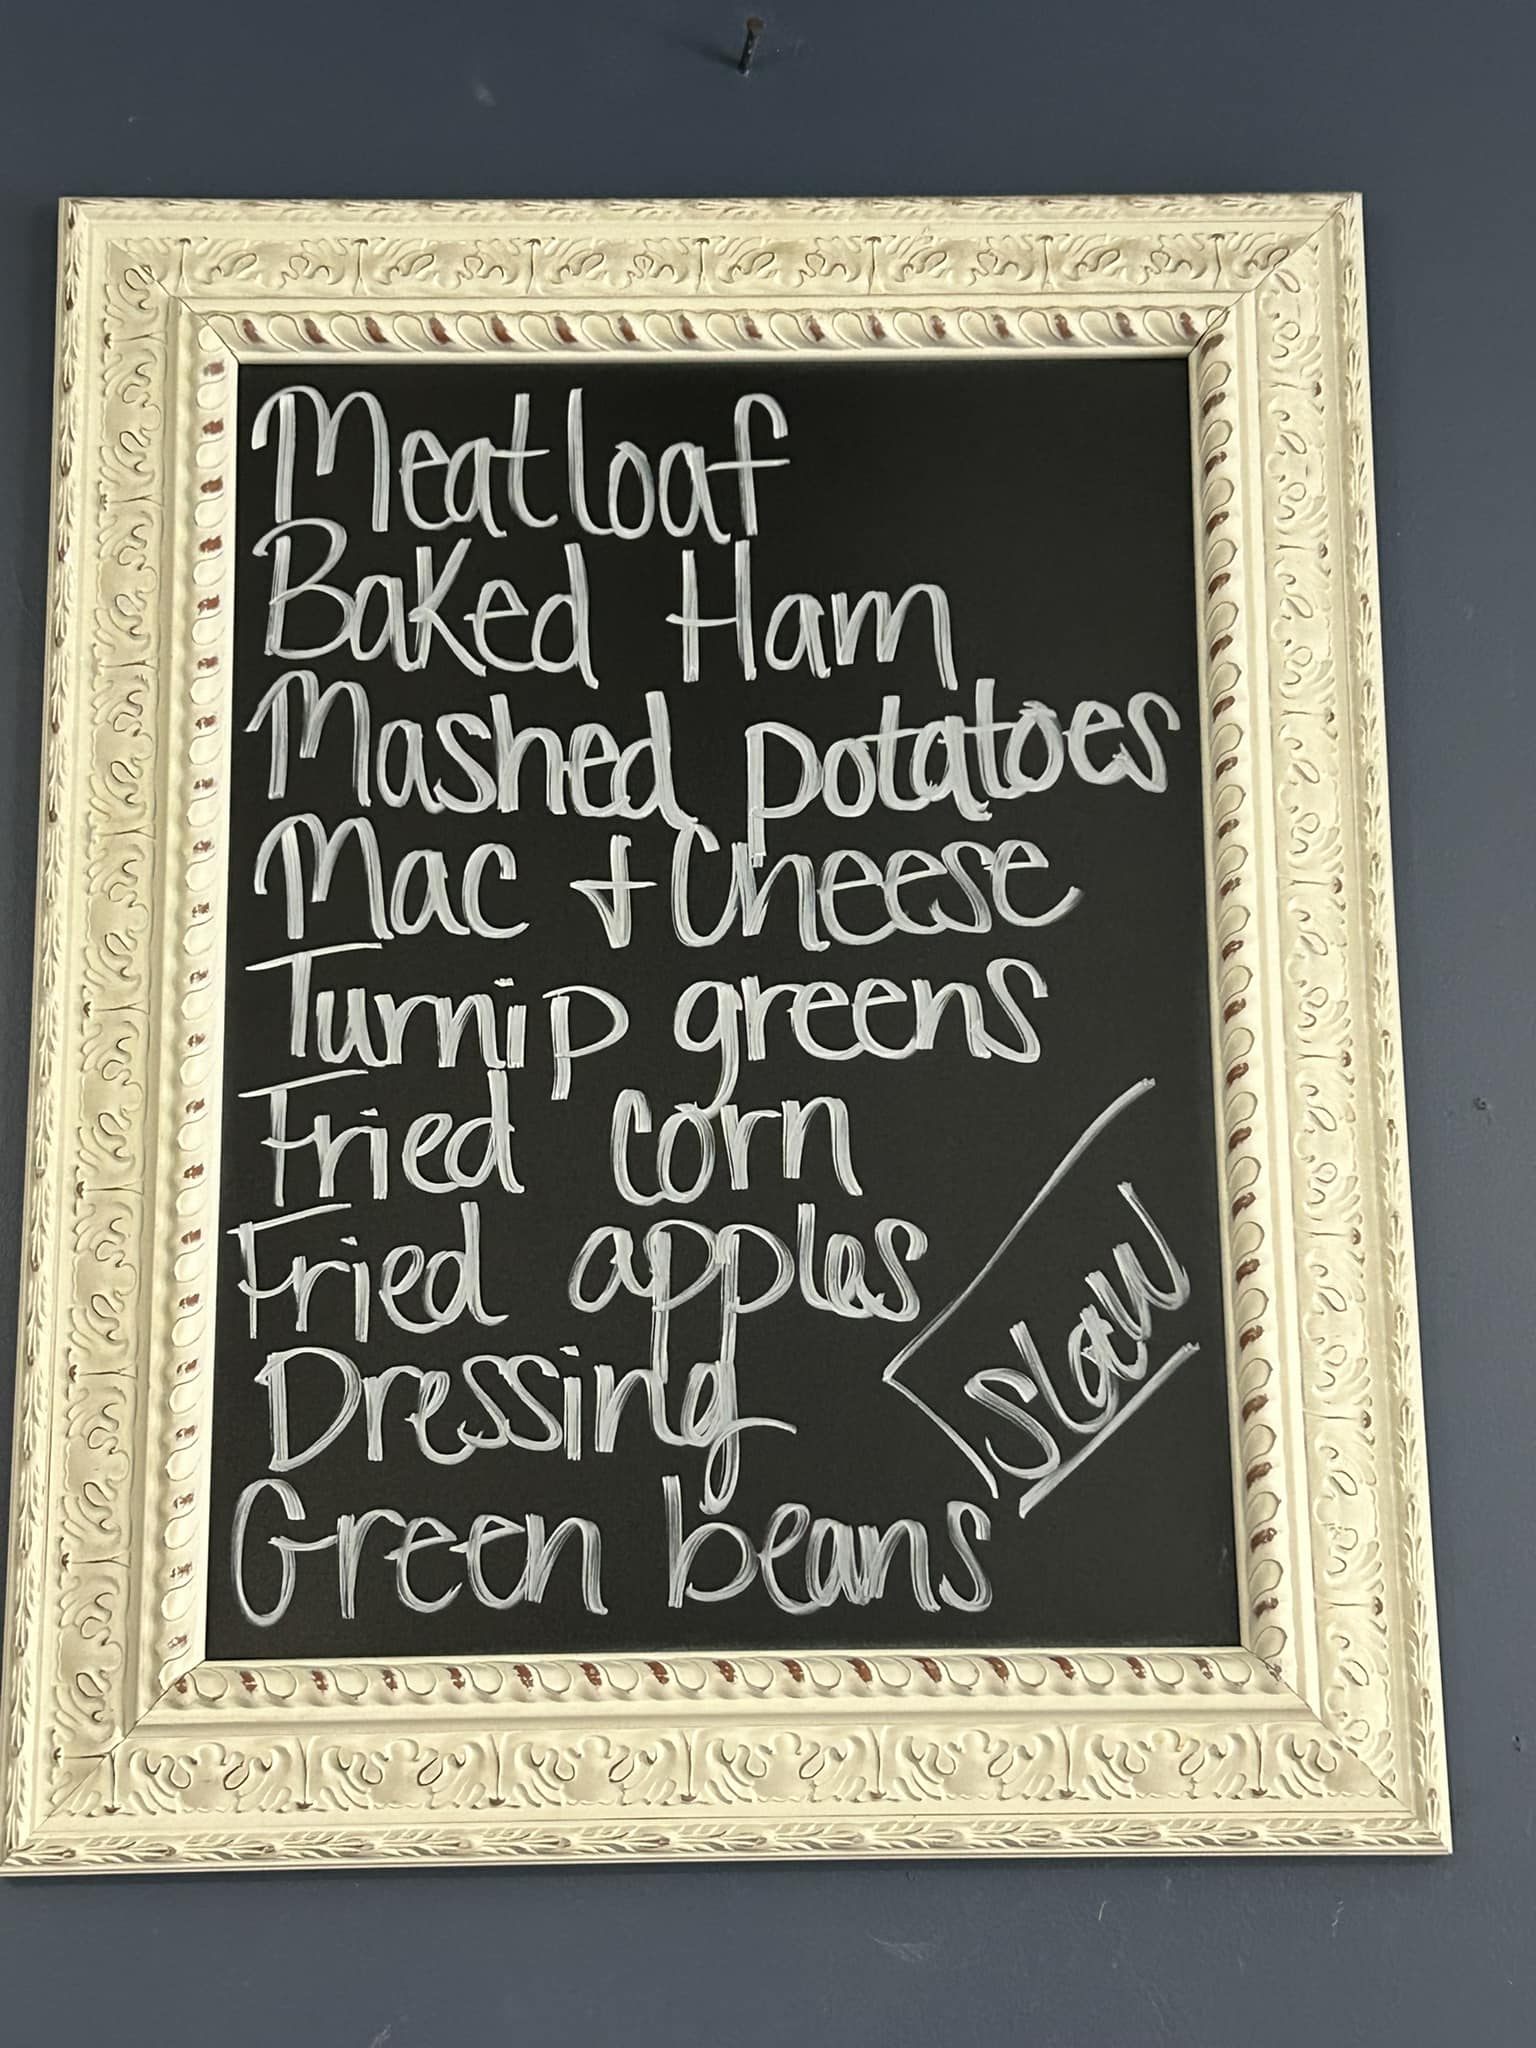 Meatloaf
Baked Ham
Mashed potatoes
Mac + Cheese
Turnip greens
Fried corn
Fried apples
Dressing
Green beans
Slaw